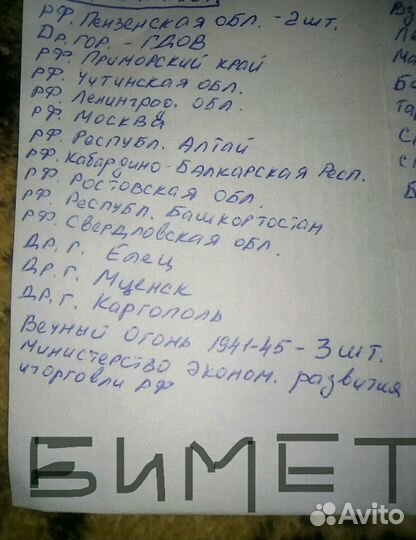 РФ. Пензенская обл. - 2 шт.
Др. гор. - ГДОВ
РФ. Приморский край
РФ. Читинская обл.
РФ. Ленинград. обл.
РФ. Москва
РФ. Республ. Алтай
РФ. Кабардино-Балкарская Респ.
РФ. Ростовская обл.
РФ. Республ. Башкортостан
РФ. Свердловская обл.
Др. г. Елец
Др. г. Мценск
Др. г. Каргополь
Вечный Огонь 1941-45 - 3 шт.
Министерство эконом. развития
и торговли РФ
БИМЕТ
Avito